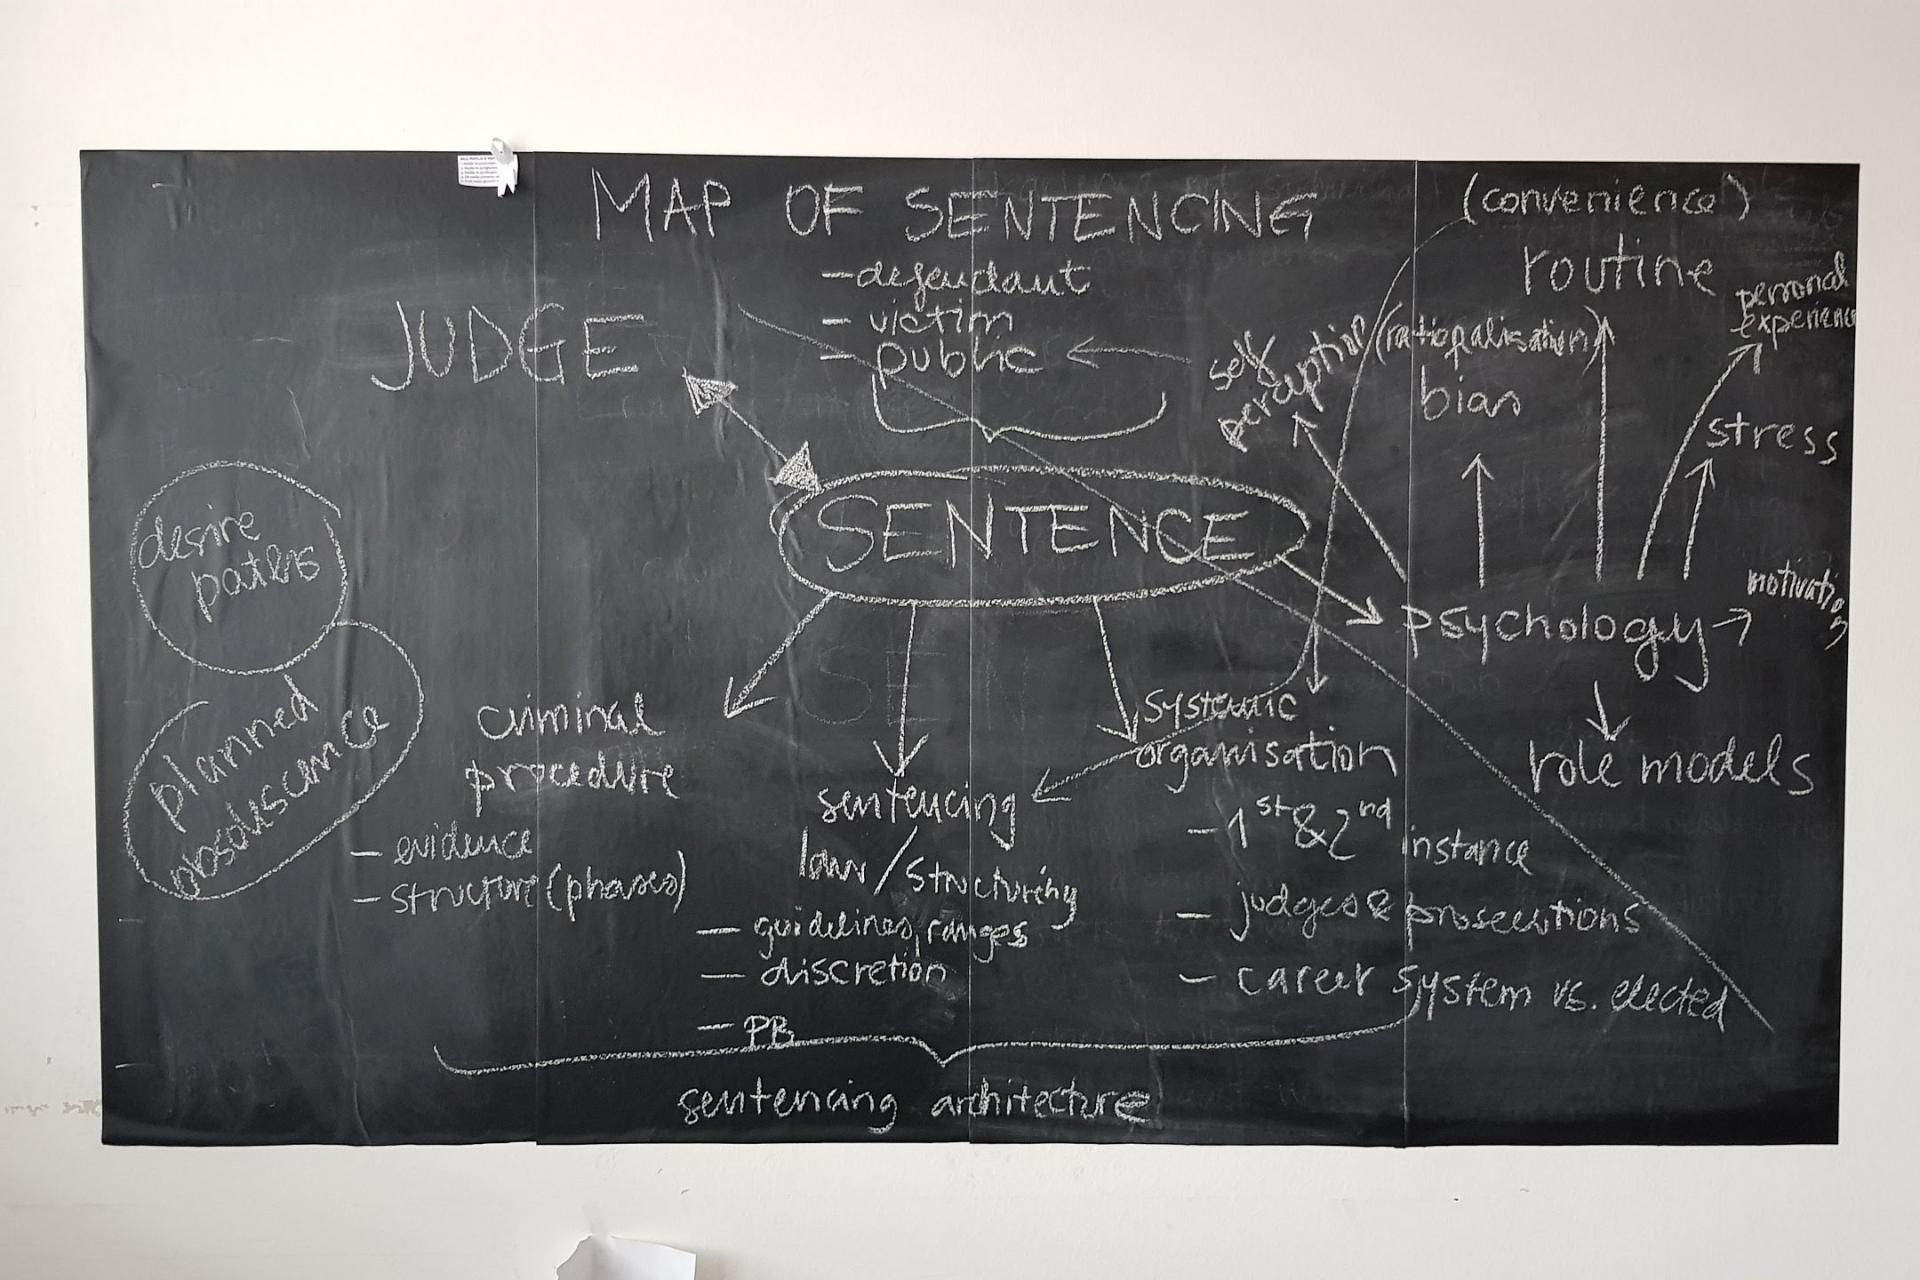 MAP OF SENTENCING
(convenience)
routine
personal
experience
- defendant
- victim
- public
JUDGE
self
perception
(rationalisation)
bias
stress
SENTENCE
desire
paths
psychology
motivation
planned
obsolescence
criminal
procedure
- evidence
- structure (phases)
sentencing
law / structuring
- guidelines, ranges
- discretion
- PB
systemic
organisation
- 1st & 2nd instance
- judges & prosecutions
- career system vs. elected
role models
sentencing architecture